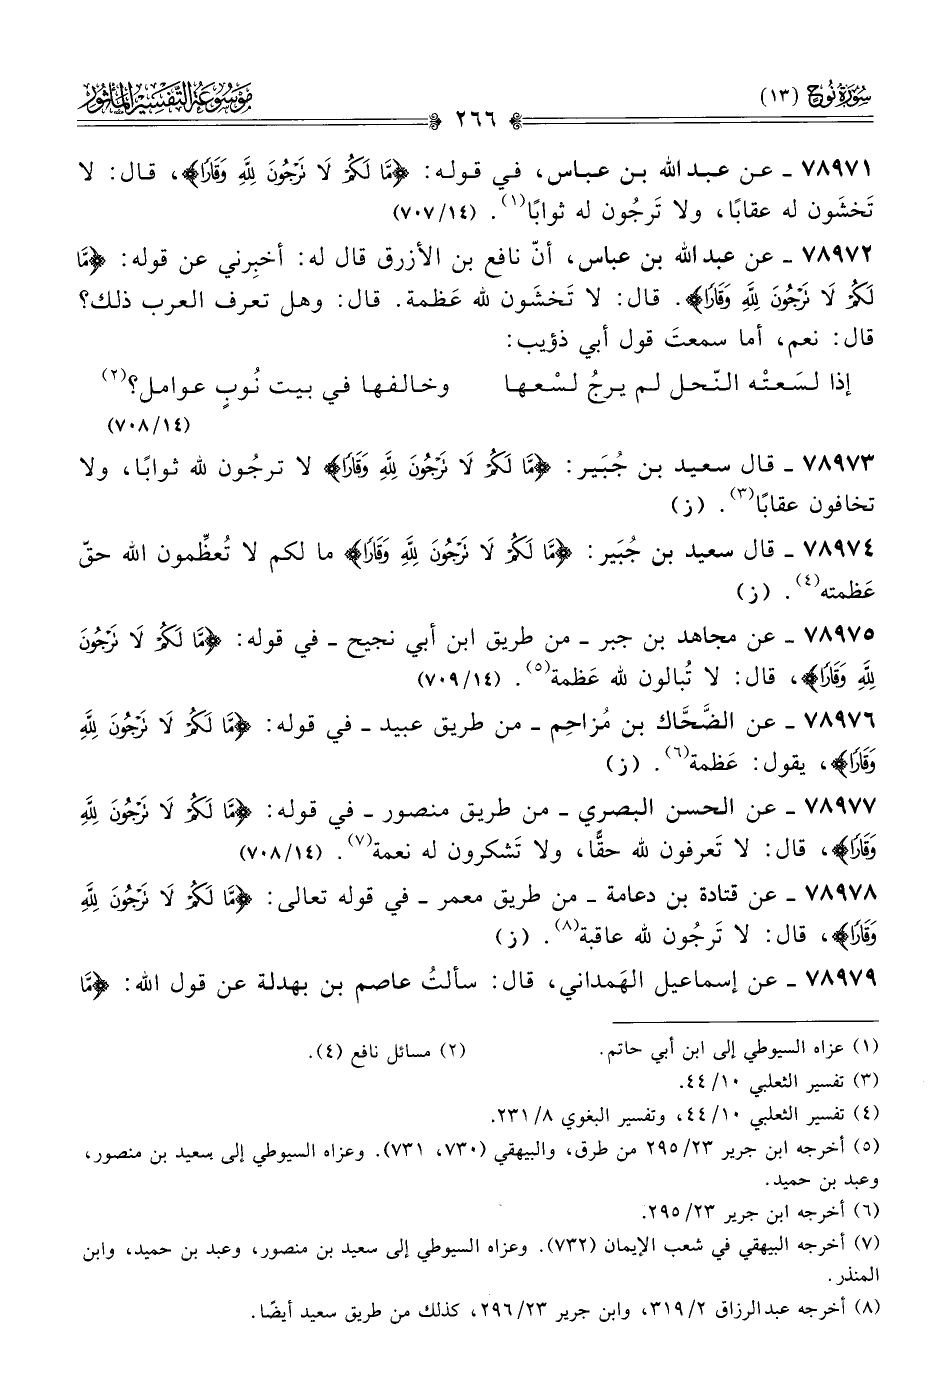 سُورَةُ نُوح (١٣)
مَوْسُوعَةُ التَّفْسِيرِ المَأْثُور
٢٦٦
٧٨٩٧١ ـ عن عبد الله بن عباس، في قوله: ﴿مَّا لَكُمْ لَا نَرْجُونَ لِلَّهِ وَقَارًا﴾، قال: لا
تَخشَون له عقابًا، ولا تَرجُون له ثوابًا(١). (١٤/ ٧٠٧)
٧٨٩٧٢ ـ عن عبد الله بن عباس، أنّ نافع بن الأزرق قال له: أخبِرني عن قوله: ﴿مَّا
لَكُمْ لَا نَرْجُونَ لِلَّهِ وَقَارًا﴾. قال: لا تَخشَون لله عَظمة. قال: وهل تعرف العرب ذلك؟
قال: نعم، أما سمعتَ قول أبي ذؤيب:
إذا لسَعتْه النّحل لم يرجُ لسْعها وخالفها في بيت نُوبٍ عوامل؟(٢)
(١٤/ ٧٠٨)
٧٨٩٧٣ ـ قال سعيد بن جُبَير: ﴿مَّا لَكُمْ لَا نَرْجُونَ لِلَّهِ وَقَارًا﴾ لا ترجُون لله ثوابًا، ولا
تخافون عقابًا(٣). (ز)
٧٨٩٧٤ ـ قال سعيد بن جُبَير: ﴿مَّا لَكُمْ لَا نَرْجُونَ لِلَّهِ وَقَارًا﴾ ما لكم لا تُعظِّمون الله حقّ
عَظمته(٤). (ز)
٧٨٩٧٥ ـ عن مجاهد بن جبر ـ من طريق ابن أبي نجيح ـ في قوله: ﴿مَّا لَكُمْ لَا نَرْجُونَ
لِلَّهِ وَقَارًا﴾، قال: لا تُبالون لله عَظمة(٥). (١٤/ ٧٠٩)
٧٨٩٧٦ ـ عن الضَّحَّاك بن مُزاحِم ـ من طريق عبيد ـ في قوله: ﴿مَّا لَكُمْ لَا نَرْجُونَ لِلَّهِ
وَقَارًا﴾، يقول: عَظمة(٦). (ز)
٧٨٩٧٧ ـ عن الحسن البصري ـ من طريق منصور ـ في قوله: ﴿مَّا لَكُمْ لَا نَرْجُونَ لِلَّهِ
وَقَارًا﴾، قال: لا تَعرفون لله حقًّا، ولا تَشكرون له نعمة(٧). (١٤/ ٧٠٨)
٧٨٩٧٨ ـ عن قتادة بن دعامة ـ من طريق معمر ـ في قوله تعالى: ﴿مَّا لَكُمْ لَا نَرْجُونَ لِلَّهِ
وَقَارًا﴾، قال: لا تَرجُون لله عاقبة(٨). (ز)
٧٨٩٧٩ ـ عن إسماعيل الهَمداني، قال: سألتُ عاصم بن بهدلة عن قول الله: ﴿مَّا
(١) عزاه السيوطي إلى ابن أبي حاتم. (٢) مسائل نافع (٤).
(٣) تفسير الثعلبي ١٠/ ٤٤.
(٤) تفسير الثعلبي ١٠/ ٤٤، وتفسير البغوي ٨/ ٢٣١.
(٥) أخرجه ابن جرير ٢٣/ ٢٩٥ من طرق، والبيهقي (٧٣٠، ٧٣١). وعزاه السيوطي إلى سعيد بن منصور،
وعبد بن حميد.
(٦) أخرجه ابن جرير ٢٣/ ٢٩٥.
(٧) أخرجه البيهقي في شعب الإيمان (٧٣٢). وعزاه السيوطي إلى سعيد بن منصور، وعبد بن حميد، وابن
المنذر.
(٨) أخرجه عبد الرزاق ٢/ ٣١٩، وابن جرير ٢٣/ ٢٩٦، كذلك من طريق سعيد أيضًا.